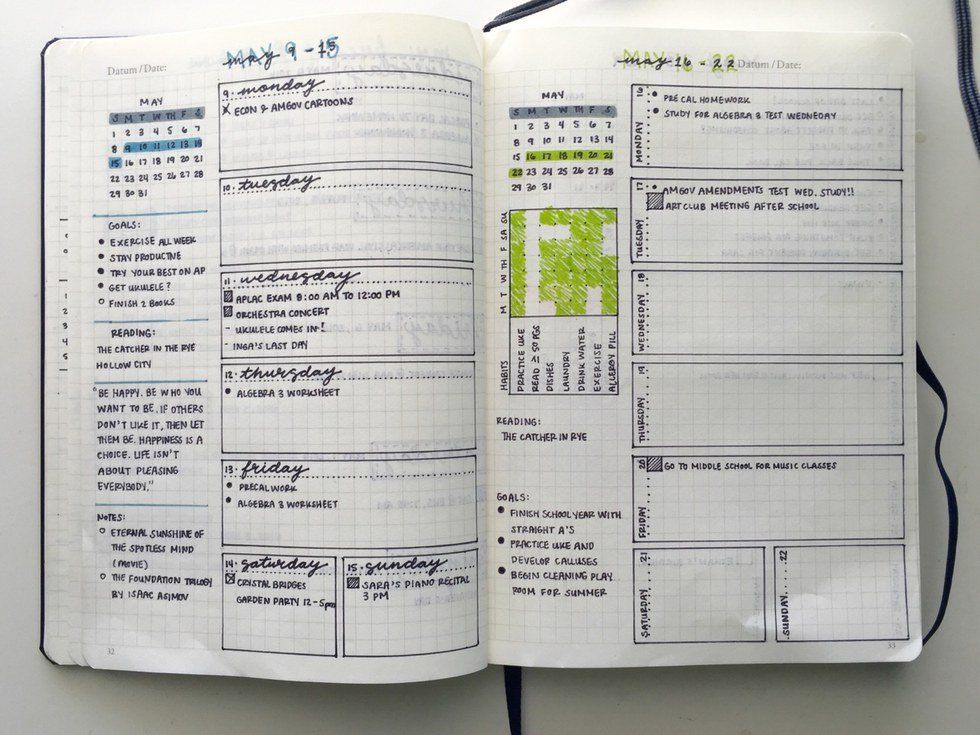 Datum / Date:
MAY 9 - 15
MAY
S M T W TH F S
1 2 3 4 5 6 7
8 9 10 11 12 13 14
15 16 17 18 19 20 21
22 23 24 25 26 27 28
29 30 31
GOALS:
EXERCISE ALL WEEK
STAY PRODUCTIVE
TRY YOUR BEST ON AP
GET UKULELE?
FINISH 2 BOOKS
READING:
THE CATCHER IN THE RYE
HOLLOW CITY
"BE HAPPY. BE WHO YOU
WANT TO BE. IF OTHERS
DON'T LIKE IT, THEN LET
THEM BE. HAPPINESS IS A
CHOICE. LIFE ISN'T
ABOUT PLEASING
EVERYBODY."
NOTES:
ETERNAL SUNSHINE OF
THE SPOTLESS MIND
(MOVIE)
THE FOUNDATION TRILOGY
BY ISAAC ASIMOV
32
9. monday
ECON & AMGOV CARTOONS
10. tuesday
11. wednesday
APLAC EXAM 8:00 AM TO 12:00 PM
ORCHESTRA CONCERT
- UKULELE COMES IN!
- INGA'S LAST DAY
12. thursday
ALGEBRA 3 WORKSHEET
13. friday
PRECAL WORK
ALGEBRA 3 WORKSHEET
14. saturday
CRYSTAL BRIDGES
GARDEN PARTY 12-5pm
15. sunday
SARA'S PIANO RECITAL
3 PM
may 16 - 22
Datum / Date:
MAY
S M T W TH F S
1 2 3 4 5 6 7
8 9 10 11 12 13 14
15 16 17 18 19 20 21
22 23 24 25 26 27 28
29 30 31
M T W TH F SA SU
HABITS
PRACTICE UKE
READ ≥1 50 PGS
DISHES
LAUNDRY
DRINK WATER
EXERCISE
ALLERGY PILL
READING:
THE CATCHER IN RYE
GOALS:
FINISH SCHOOL YEAR WITH
STRAIGHT A'S
PRACTICE UKE AND
DEVELOP CALLUSES
BEGIN CLEANING PLAY
ROOM FOR SUMMER
MONDAY 16
PRE CAL HOMEWORK
STUDY FOR ALGEBRA 3 TEST WEDNEDAY
TUESDAY 17
AMGOV AMENDMENTS TEST WED. STUDY!!
ART CLUB MEETING AFTER SCHOOL
WEDNESDAY 18
THURSDAY 19
FRIDAY 20
GO TO MIDDLE SCHOOL FOR MUSIC CLASSES
SATURDAY 21
SUNDAY 22
33